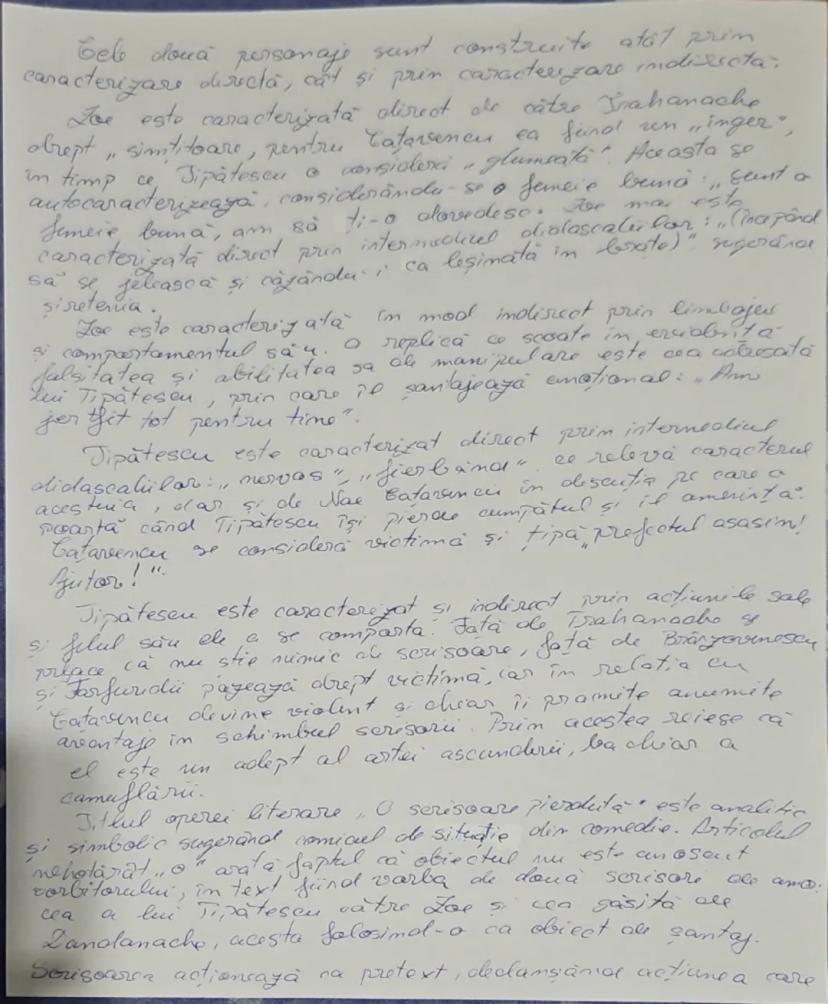 Cele două personaje sunt construite atât prin
caracterizare directă, cât și prin caracterizare indirectă.
Zoe este caracterizată direct de către Trahanache
drept „simțitoare, pentru Cațavencu ea fiind un „înger",
în timp ce Tipătescu o consideră „glumeață". Aceasta se
autocaracterizează, considerându-se o femeie bună: „Sunt o
femeie bună, am să ți-o dovedesc. Zoe mai este
caracterizată direct prin intermediul didascaliilor: „(începând
să se jelească și căzându-i ca leșinată în brațe)" sugerând
șiretenia.
Zoe este caracterizată în mod indirect prin limbajul
și comportamentul său. O replică ce scoate în evidență
falsitatea și abilitatea sa de manipulare este cea adresată
lui Tipătescu, prin care îl șantajează emoțional: „Am
jertfit tot pentru tine".
Tipătescu este caracterizat direct prin intermediul
didascaliilor: „nervos", „fierbând" ce relevă caracterul
acestuia, dar și de Nae Cațavencu în discuția pe care o
poartă când Tipătescu își pierde cumpătul și îl amenință.
Cațavencu se consideră victimă și țipă „prefectul asasin!
Ajutor!".
Tipătescu este caracterizat și indirect prin acțiunile sale
și felul său de a se comporta. Față de Trahanache se
preface că nu știe nimic de scrisoare, față de Brânzovenescu
și Farfuridi pozează drept victimă, iar în relația cu
Cațavencu devine violent și chiar îi promite anumite
avantaje în schimbul scrisorii. Prin acestea reiese că
el este un adept al artei ascunderii, ba chiar a
camuflării.
Titlul operei literare „O scrisoare pierdută" este analitic
și simbolic sugerând comicul de situație din comedie. Articolul
nehotărât „o" arată faptul că obiectul nu este cunoscut
vorbitorului, în text fiind vorba de două scrisori de amor:
cea a lui Tipătescu către Zoe și cea găsită de
Dandanache, acesta folosind-o ca obiect de șantaj.
Scrisoarea acționează ca pretext, declanșând acțiunea care